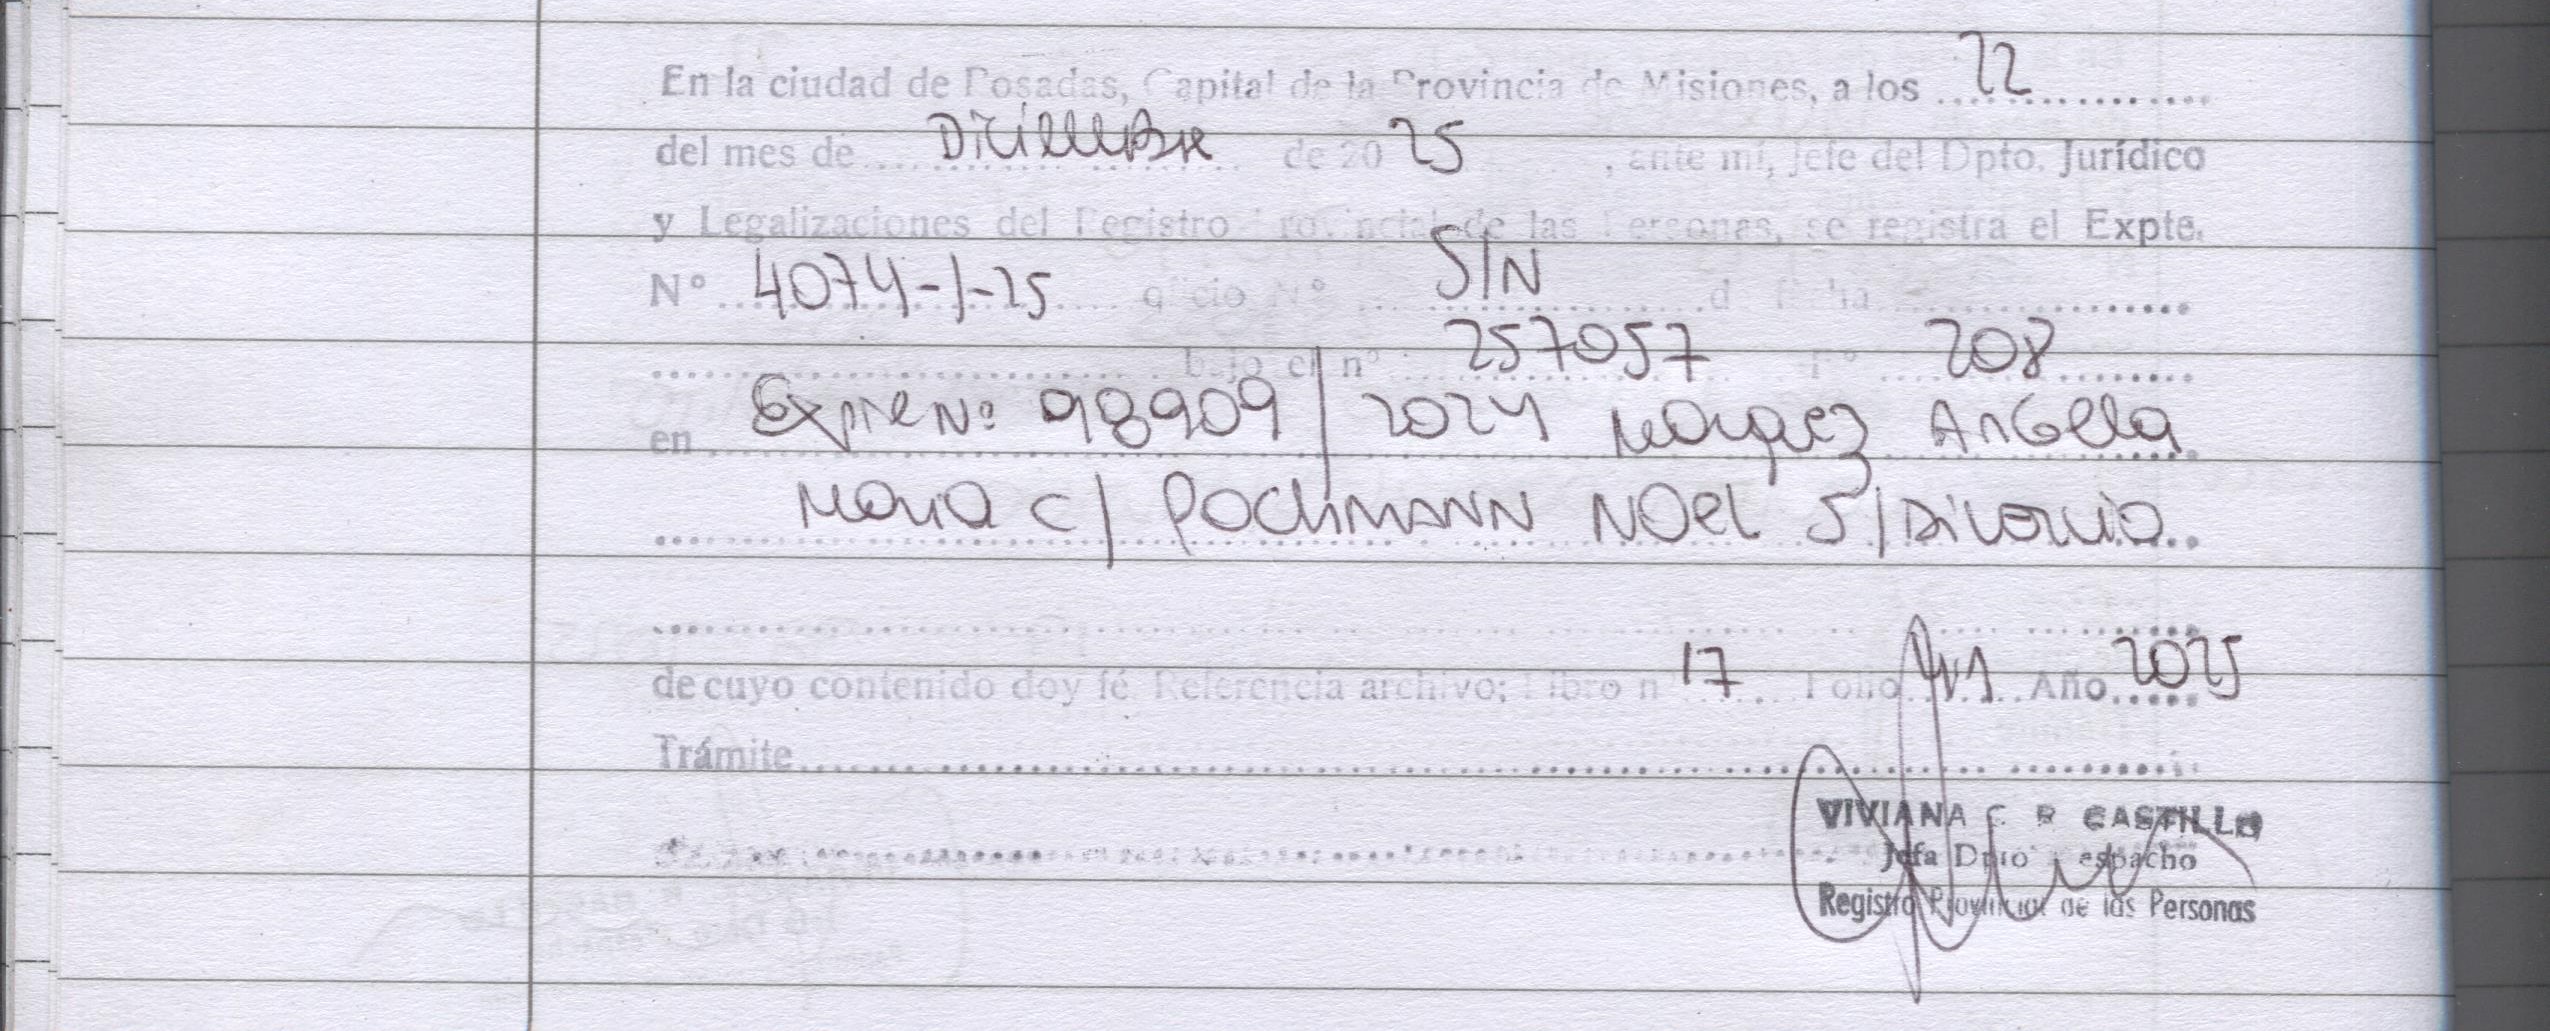 En la ciudad de Posadas, Capital de la Provincia de Misiones, a los 22
del mes de Diciembre de 20 25, ante mí, Jefe del Dpto. Jurídico
y Legalizaciones del Registro Provincial de las Personas, se registra el Expte.
N° 4074-1-25 oficio N° S/N de fecha
bajo el n° 257057 F° 208
en Expte N° 98909/2024 Marquez Angela
Maria c/ POCHMANN NOEL S/Divorcio
de cuyo contenido doy fé. Referencia archivo; Libro n° 17 Folio Año 2025
Trámite
VIVIANA C. R. CASTILLO
Jefa Dpto Despacho
Registro Provincial de las Personas